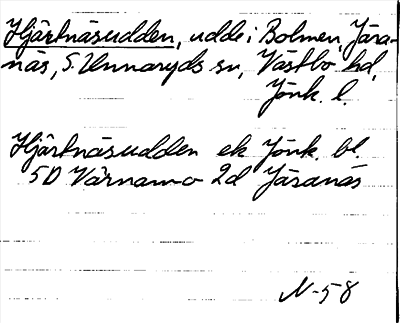 Hjärtnäsudden, udde i Bolmen, Jära-
näs, S. Unnaryds sn, Västbo hd,
Jönk. l.
Hjärtnäsudden ek Jönk. bl.
5D Värnamo 2d Jäsanäs
N-58